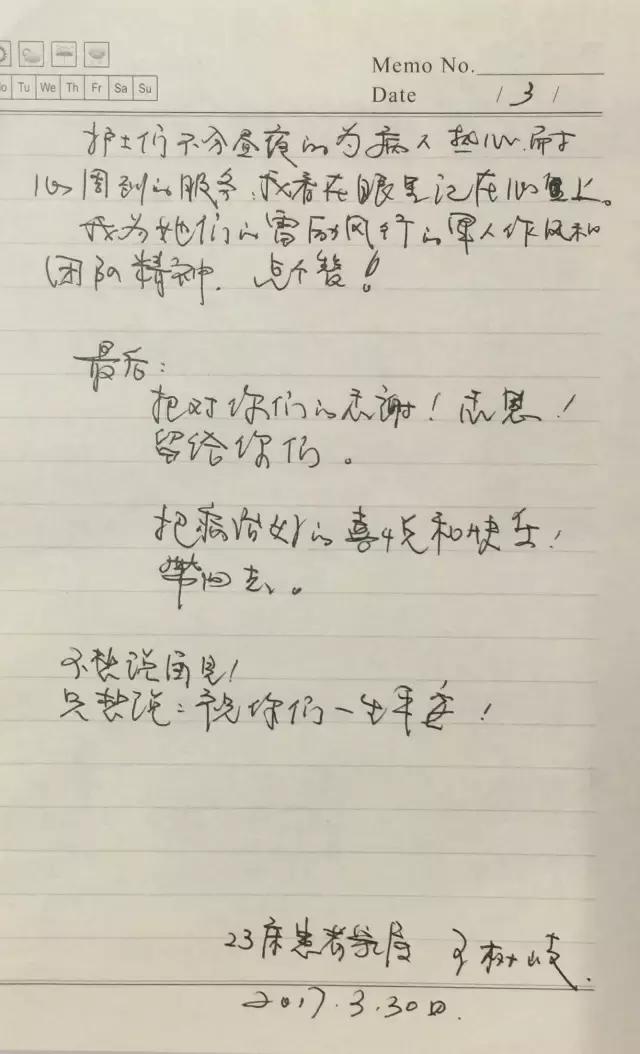 Mo Tu We Th Fr Sa Su
Memo No.
Date / 3 /
护士们不分昼夜的为病人热心.耐
心周到的服务,我看在眼里记在心里上。
我为她们的雷厉风行的军人作风和
团队精神.点个赞!
最后:
把对你们的感谢!感恩!
留给你们。
把病治好的喜悦和快乐!
带回去。
不想说再见!
只想说:祝你们一生平安!
23床患者家属 王树岐.
2017.3.30日.